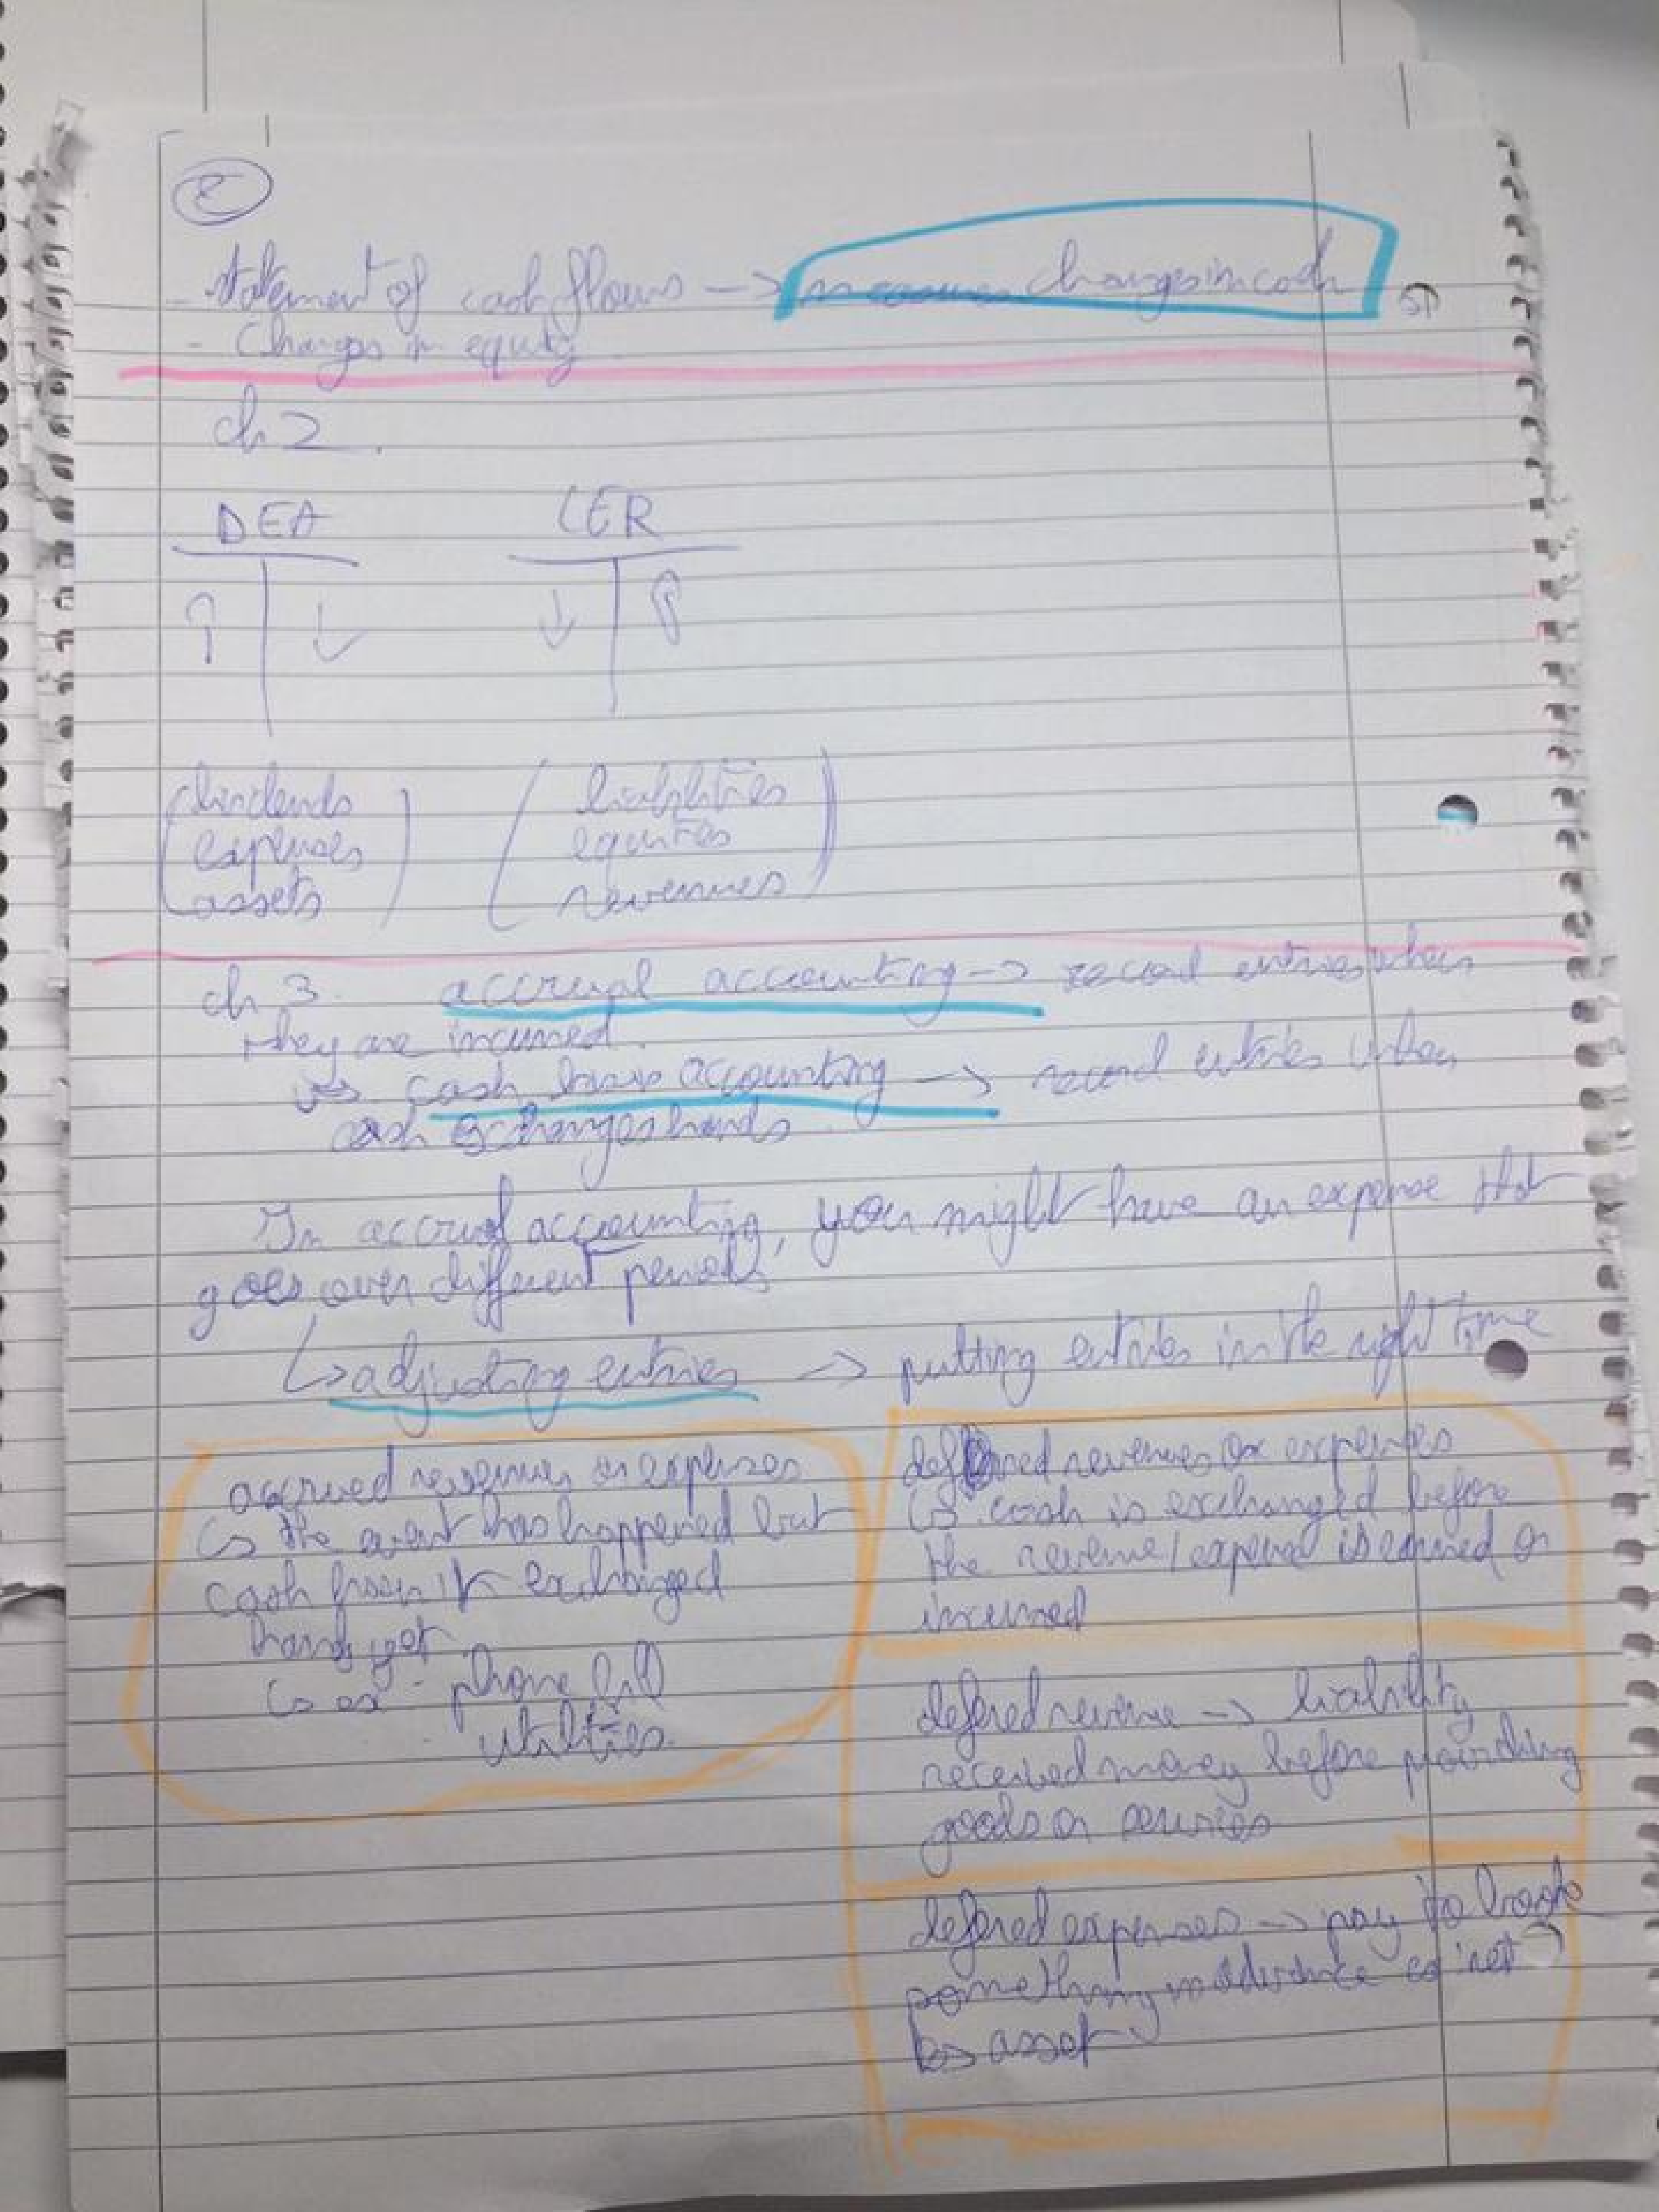 2
- statement of cash flows -> measures changes in cash
- Changes in equity
ch 2.
DEA LER
↑ ↓ ↓ ↑
dividends
expenses
assets
liabilities
equities
revenues
ch 3. accrual accounting -> record entries when
they are incurred.
vs cash basis accounting -> record entries when
cash exchanges hands.
In accrual accounting, you might have an expense that
goes over different periods
↳ adjusting entries -> putting entries in the right time
accrued revenues or expenses
↳ the event has happened but
cash hasn't exchanged
hands yet
↳ ex - phone bill
utilities.
defered revenues or expenses
↳ cash is exchanged before
the revenue/expense is earned or
incurred
defered revenue -> liability
received money before providing
goods or services
defered expenses -> pay to
something in advance
↳ asset